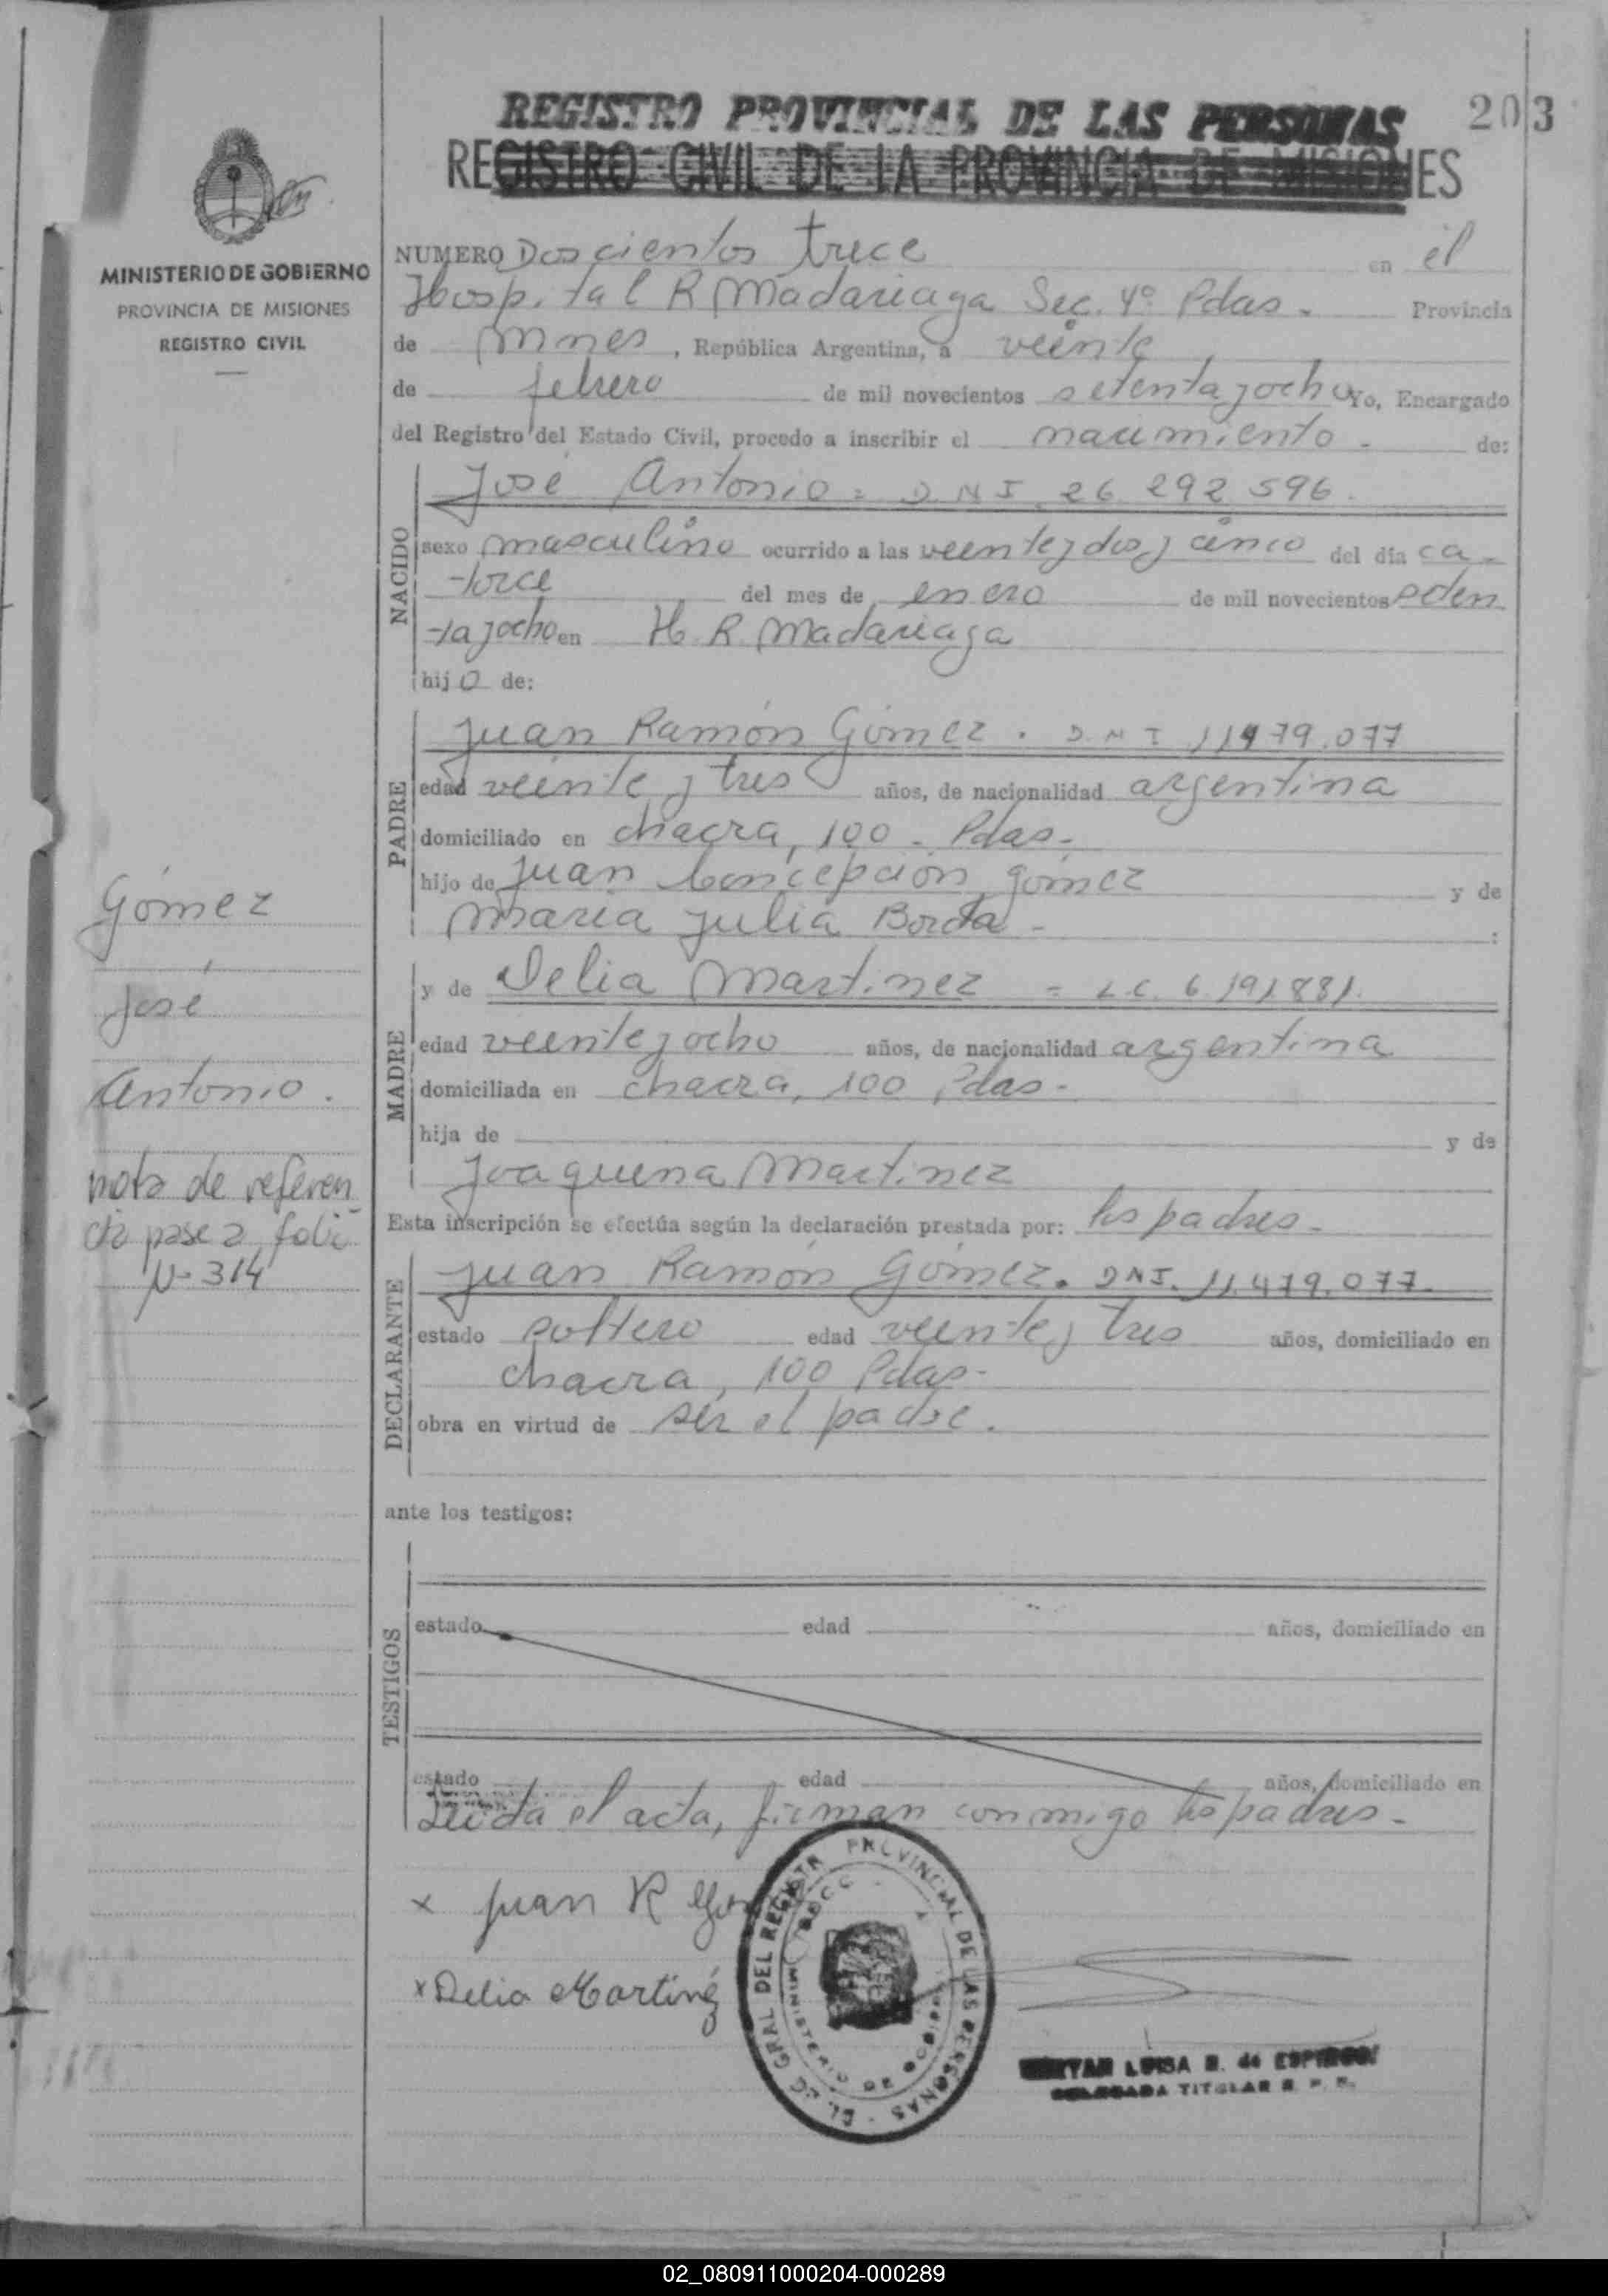 REGISTRO PROVINCIAL DE LAS PERSONAS
203
REGISTRO CIVIL DE LA PROVINCIA DE MISIONES
MINISTERIO DE GOBIERNO
PROVINCIA DE MISIONES
REGISTRO CIVIL
NUMERO Doscientos trece en el
Hospital R Madariaga Sec. 4º Pdas. Provincia
de Mnes, República Argentina, a veinte
de febrero de mil novecientos setenta y ocho Yo, Encargado
del Registro del Estado Civil, procedo a inscribir el nacimiento de:
NACIDO
José Antonio = D.N.I. 26.292.596.
sexo masculino ocurrido a las veinte y dos y cinco del día ca-
-torce del mes de enero de mil novecientos seten
-ta y ocho en H. R. Madariaga
hijo de:
PADRE
Juan Ramón Gómez. D.N.I 11479.077
edad veinte y tres años, de nacionalidad argentina
domiciliado en chacra, 100 - Pdas-
hijo de Juan Concepción Gómez y de
María Julia Borda - :
MADRE
y de Delia Martinez = L.C. 6.191.881.
edad veinte y ocho años, de nacionalidad argentina
domiciliada en chacra, 100 Pdas-
hija de y de
Joaquina Martinez
Esta inscripción se efectúa según la declaración prestada por: los padres-
DECLARANTE
Juan Ramón Gómez. DNI. 11.479.077-
estado soltero edad veinte y tres años, domiciliado en
chacra, 100 Pdas-
obra en virtud de ser el padre.
ante los testigos:
TESTIGOS
estado edad años, domiciliado en
estado edad años, domiciliado en
Leida el acta, firman conmigo los padres-
Gómez
José
Antonio.
nota de referen
cia pase a folio
Nº 314
x Juan R
x Delia Martinez
PROVINCIAL DE LAS PERSONAS
GRAL DEL REGISTR
MINISTERIO DE GOBIERNO
LUISA R. de
DELEGADA TITULAR R. P. P.
02_080911000204-000289